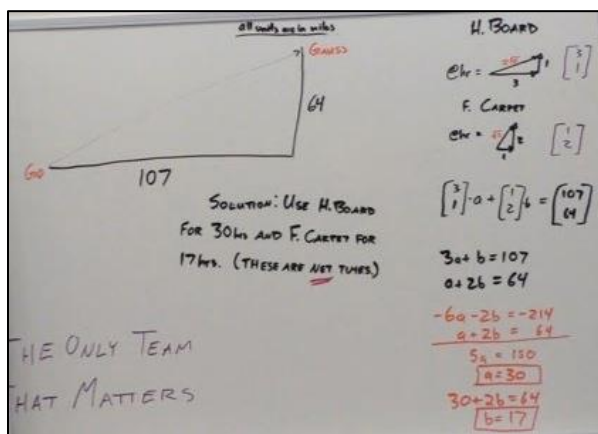 all units are in miles
GAUSS
64
GO
107
SOLUTION: USE H.BOARD
FOR 30hrs AND F. CARPET FOR
17hrs. (THESE ARE NET TIMES.)
THE ONLY TEAM
THAT MATTERS
H. BOARD
@hr =
1
3
[3 1]
F. CARPET
@hr =
2
1
[1 2]
[3 1]·a + [1 2]b = [107 64]
3a + b = 107
a + 2b = 64
-6a - 2b = -214
a + 2b = 64
5a = 150
a = 30
30 + 2b = 64
b = 17